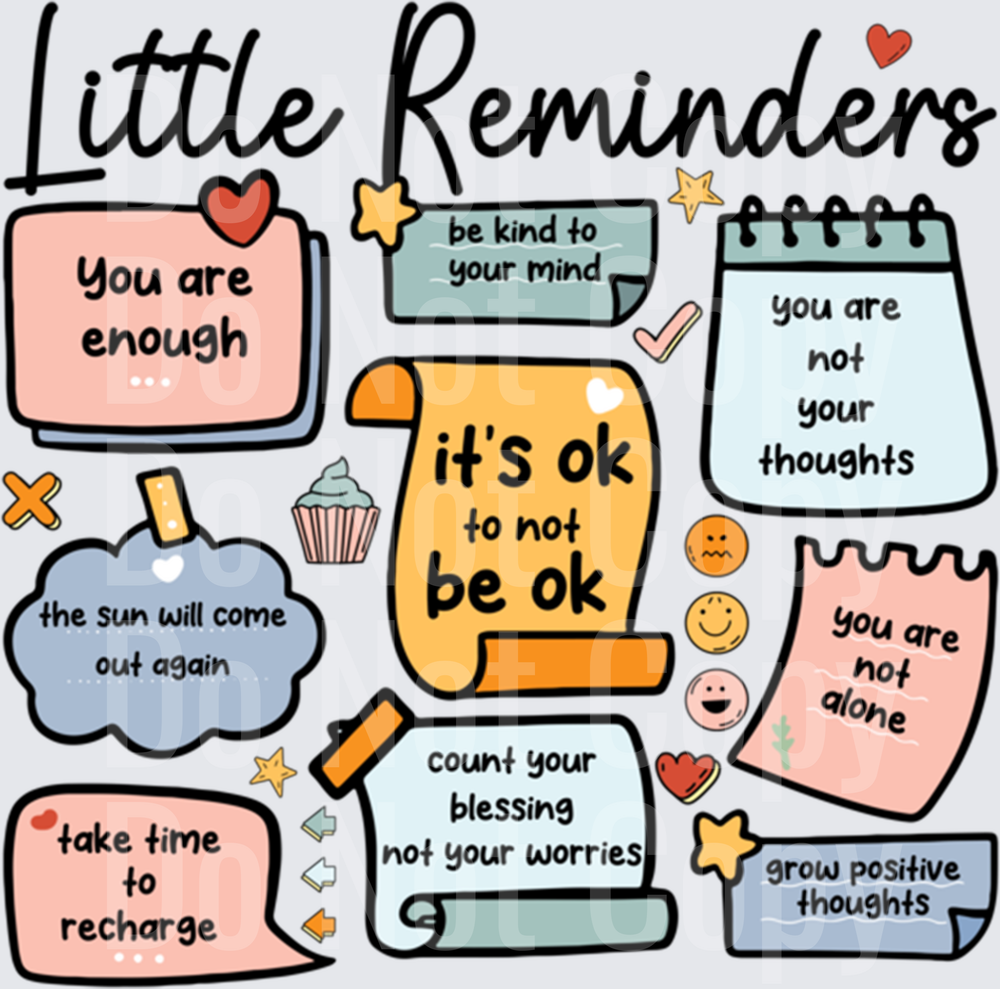 Little Reminders
You are
enough
be kind to
your mind
you are
not
your
thoughts
it's ok
to not
be ok
the sun will come
out again
you are
not
alone
count your
blessing
not your worries
take time
to
recharge
grow positive
thoughts
Do Not Copy
Do Not Copy
Do Not Copy
Do Not Copy
Do Not Copy